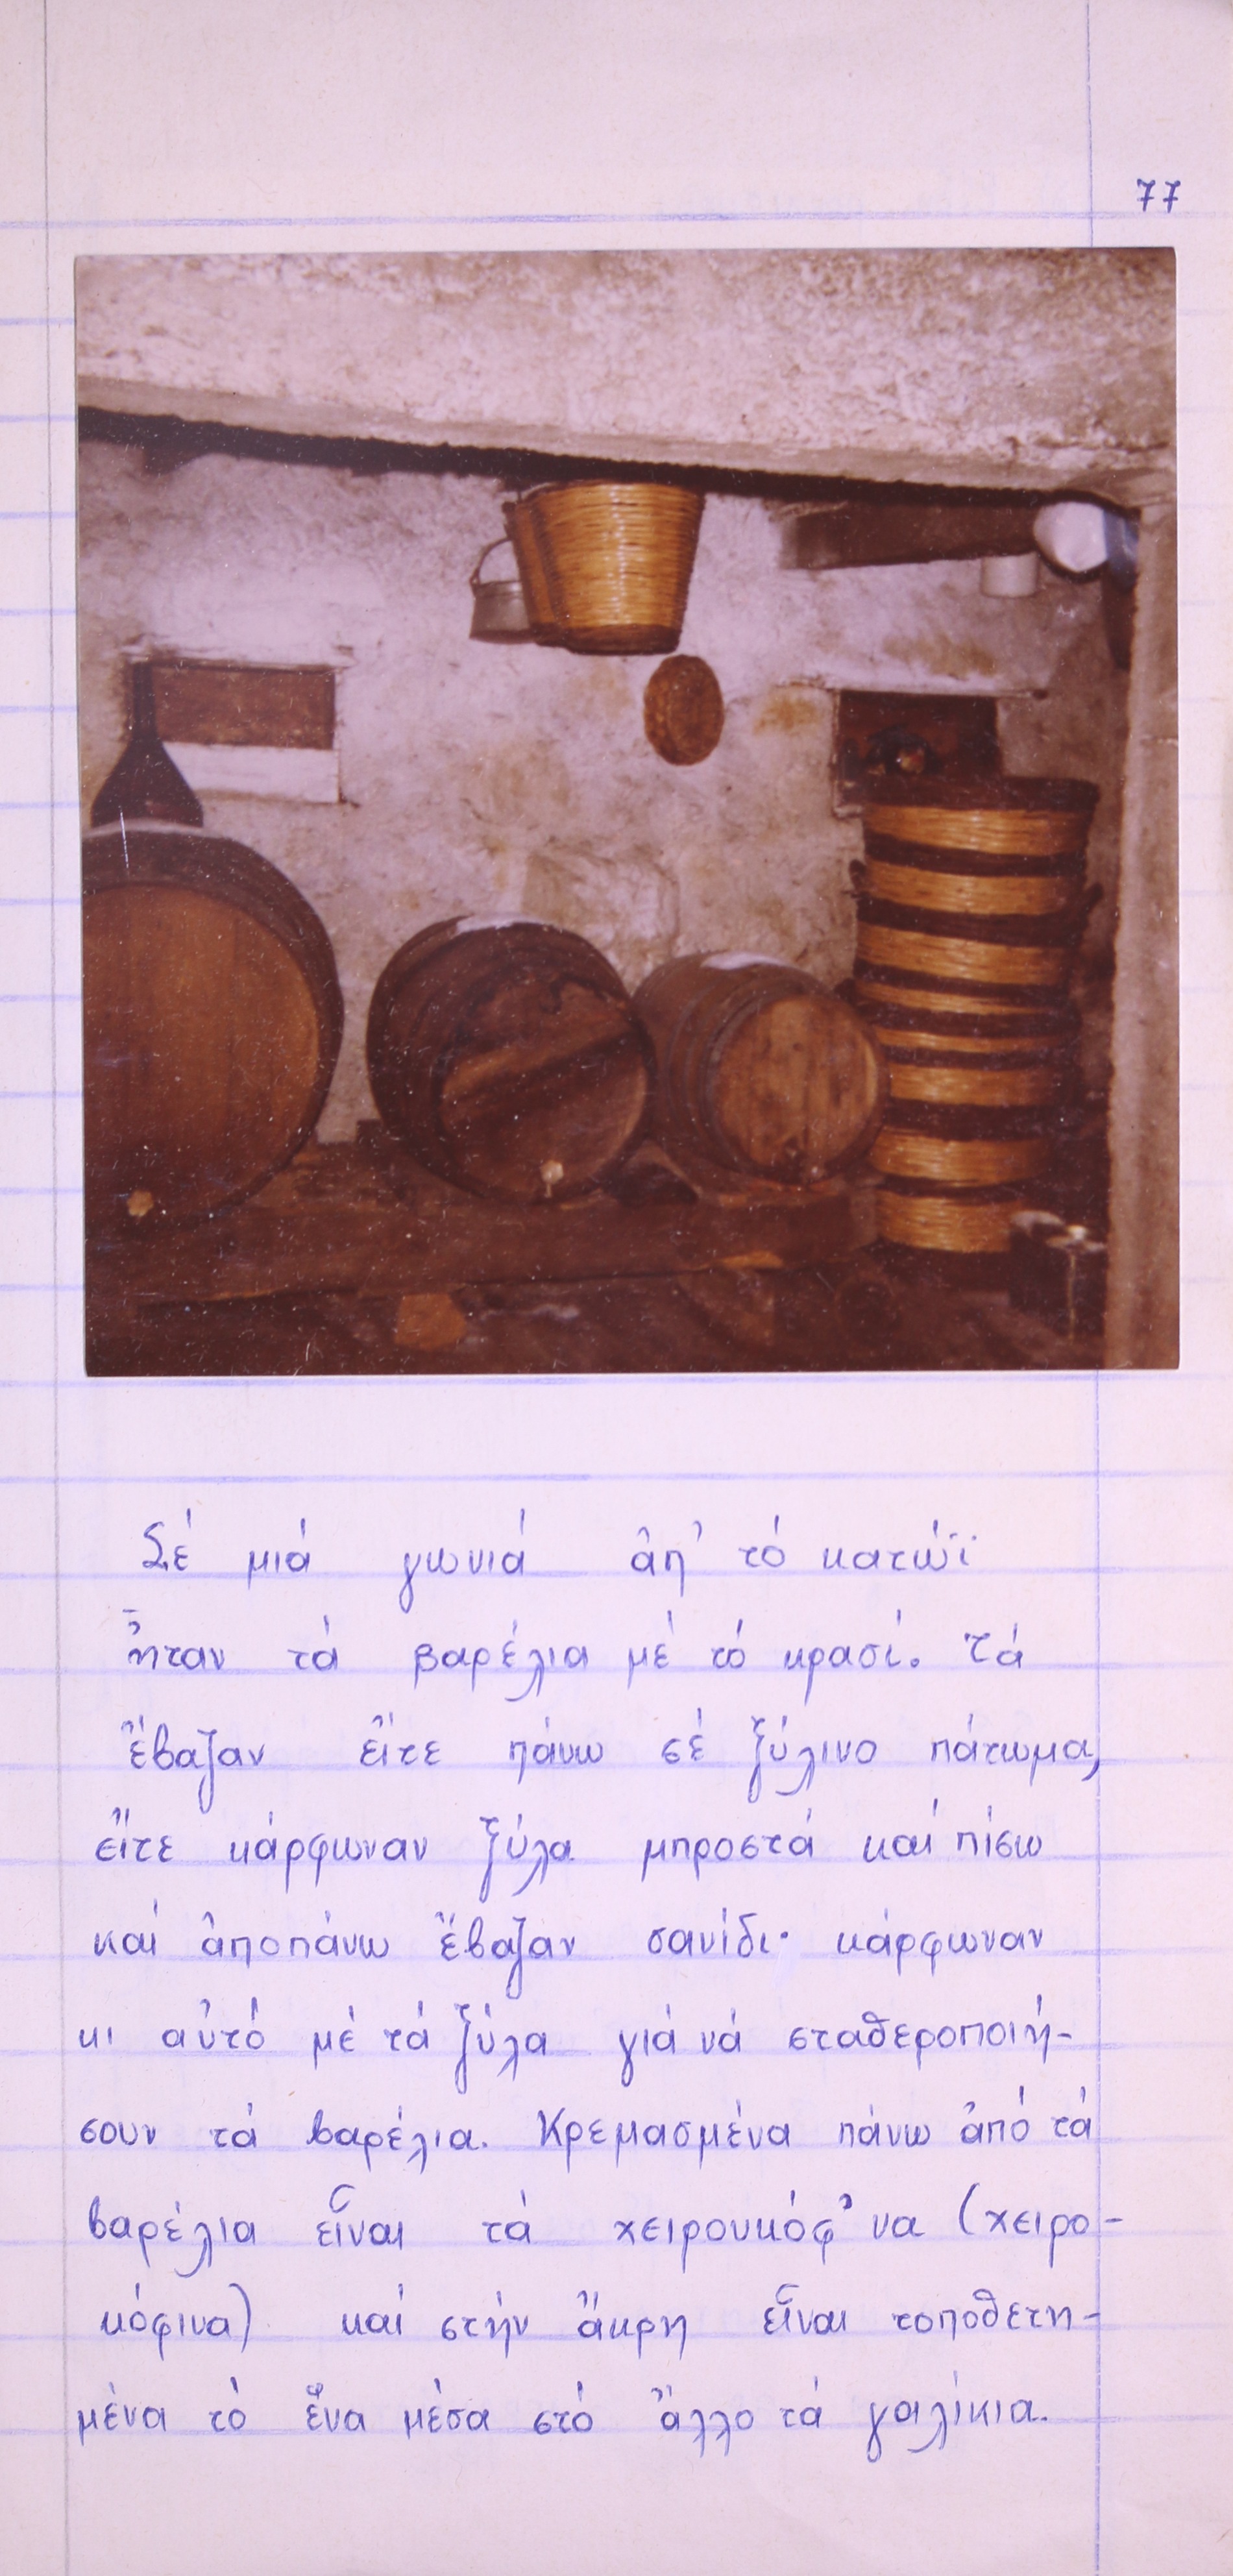 77
Σέ μιά γωνιά ἀπ' τό κατώϊ
ἦταν τά βαρέλια μέ τό κρασί. Τά
ἔβαζαν εἴτε πάνω σέ ξύλινο πάτωμα,
εἴτε κάρφωναν ξύλα μπροστά καί πίσω
καί ἀποπάνω ἔβαζαν σανίδι· κάρφωναν
κι αὐτό μέ τά ξύλα γιά νά σταθεροποιή-
σουν τά βαρέλια. Κρεμασμένα πάνω ἀπό τά
βαρέλια εἶναι τά χειρουκόφ'να (χειρο-
κόφινα) καί στήν ἄκρη εἶναι τοποθετη-
μένα τό ἕνα μέσα στό ἄλλο τά γαλίκια.